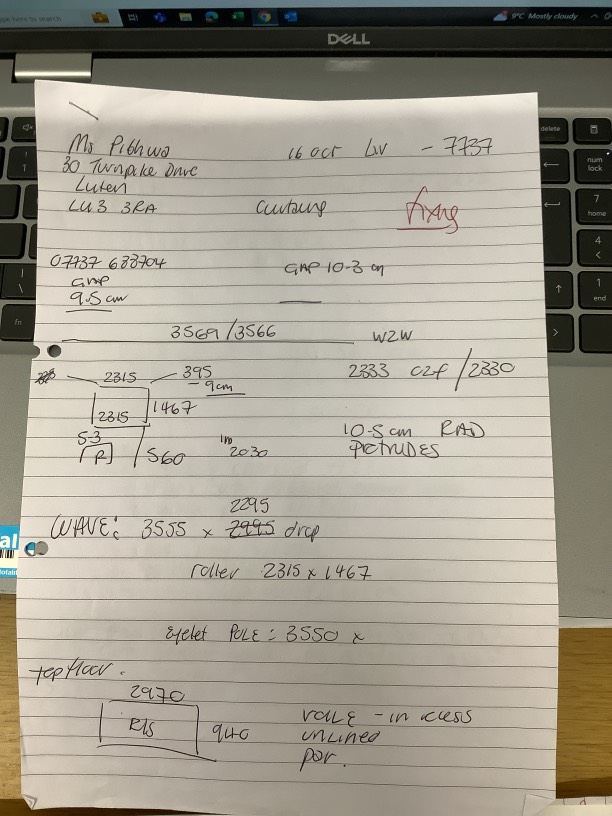 Type here to search
9°C Mostly cloudy
DELL
delete
num lock
7 home
4
1 end
fn
Ms Pithwa 16 Oct LW - 7737
30 Turnpike Drive
Luten
LU3 3RA Curtains fixing
07737 688704 GAP 10-3 cm
GAP
9.5 cm
3569/3566 W2W
2315 395 2333 C2F/2330
- 9cm
2315 1467
10-5 cm RAD
S-3
R 560 2030 PROTRUDES
2295
WAVE: 3555 x 2995 drop
roller 2315 x 1467
Eyelet POLE: 3550 x
top floor.
2970
R/S 940
unlined